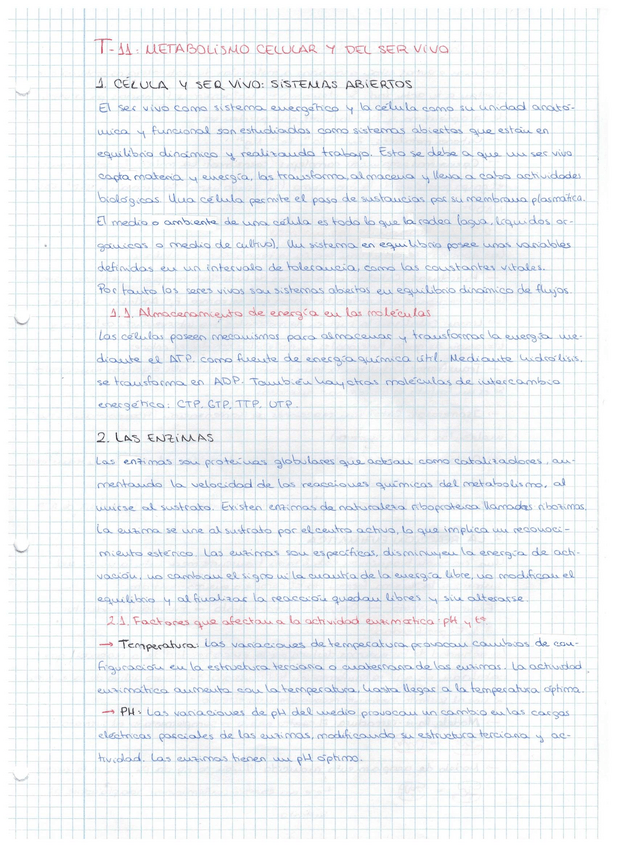 T-11. METABOLISMO CELULAR Y DEL SER VIVO
1. CÉLULA Y SER VIVO: SISTEMAS ABIERTOS
El ser vivo como sistema energético y la célula como su unidad anató-
mica y funcional son estudiados como sistemas abiertos que están en
equilibrio dinámico y realizando trabajo. Esto se debe a que un ser vivo
capta materia y energía, las transforma, almacena y lleva a cabo actividades
biológicas. Una célula permite el paso de sustancias por su membrana plasmática.
El medio o ambiente de una célula es todo lo que la rodea (agua, líquidos or-
gánicos o medio de cultivo). Un sistema en equilibrio posee unas variables
definidas en un intervalo de tolerancia, como las constantes vitales.
Por tanto los seres vivos son sistemas abiertos en equilibrio dinámico de flujos.
1.1. Almacenamiento de energía en las moléculas
Las células poseen mecanismos para almacenar y transformar la energía me-
diante el ATP, como fuente de energía química útil. Mediante hidrólisis,
se transforma en ADP. También hay otras moléculas de intercambio
energético: CTP, GTP, TTP, UTP.
2. LAS ENZIMAS
Las enzimas son proteínas globulares que actúan como catalizadores, au-
mentando la velocidad de las reacciones químicas del metabolismo, al
unirse al sustrato. Existen enzimas de naturaleza riboproteica llamadas ribozimas.
La enzima se une al sustrato por el centro activo, lo que implica un reconoci-
miento estérico. Las enzimas son específicas, disminuyen la energía de acti-
vación, no cambian el signo ni la cuantía de la energía libre, no modifican el
equilibrio y al finalizar la reacción quedan libres y sin alterarse.
2.1. Factores que afectan a la actividad enzimática: pH y tª
→ Temperatura: Las variaciones de temperatura provocan cambios de con-
figuración en la estructura terciaria o cuaternaria de las enzimas. La actividad
enzimática aumenta con la temperatura, hasta llegar a la temperatura óptima.
→ PH: Las variaciones de pH del medio provocan un cambio en las cargas
eléctricas parciales de las enzimas, modificando su estructura terciaria y ac-
tividad. Las enzimas tienen un pH óptimo.